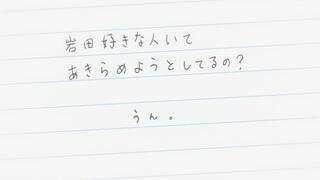 岩田好きな人いて
あきらめようとしてるの?
うん。